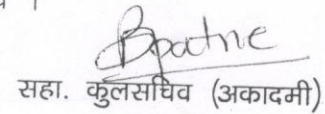 सहा. कुलसचिव (अकादमी)